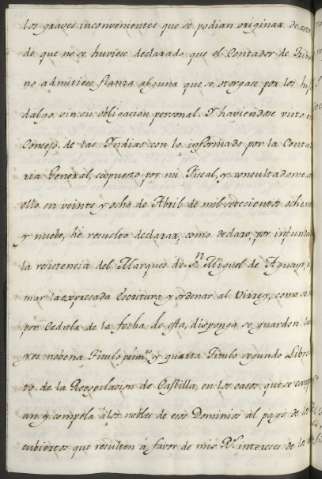 los graves inconvenientes que se podian originar de
de que no se huviese declarado que el Contador de
no admitiese fianza alguna que se otorgase por los
dalgo sin su obligacion personal. Y haviendose visto en
Consejo de las Indias con lo informado por la Conta
ria General, expuesto por mi Fiscal, y consultadome
ello en veinte y ocho de Abril de mil setecientos ochen
y nuebe, hé resuelto declarar, como declaro, por infunda
la resistencia del Marques de Sn. Miguel de Aguayo
mar la expresada Escritura y ordenar al Virrey, como
por Cedula de la fecha de esta, disponga se guarden las
yes novena Titulo prim.º y quarta Titulo segundo Libro
to de la Recopilacion de Castilla, en los casos que se
an y compela á los nobles de esos Dominios al pago de
cubiertos que resulten á favor de mis Rs. intereses de